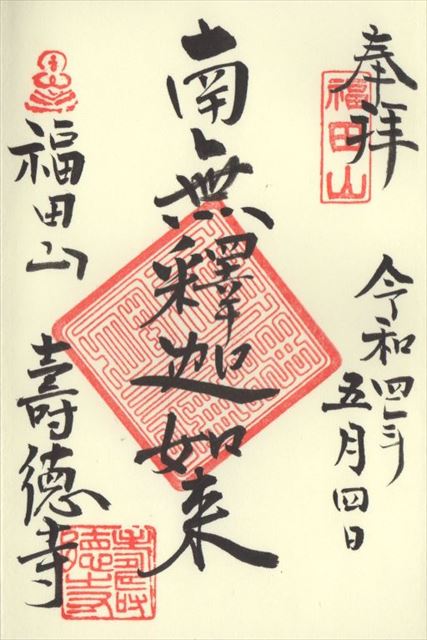 奉拝
福田山
令和四年
五月四日
南無釋迦如来
福田山
壽德寺